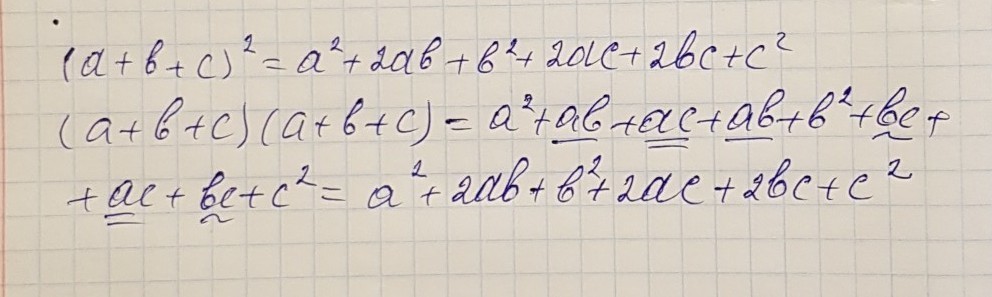 (a+b+c)²=a²+2ab+b²+2ac+2bc+c²
(a+b+c)(a+b+c)=a²+ab+ac+ab+b²+bc+
+ac+bc+c²=a²+2ab+b²+2ac+2bc+c²